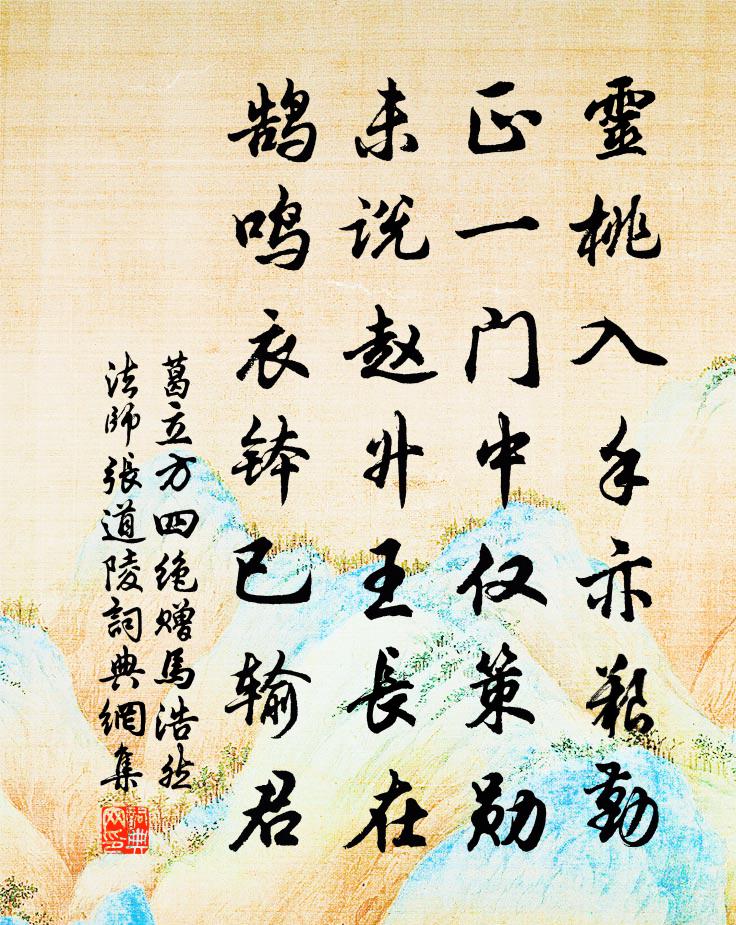 靈桃入手亦艱勤
正一门中仅策勋
未说赵升王長在
鹄鸣衣钵已输君
葛立方四绝赠馬浩然
法師張道陵詞典網集
詞典网印